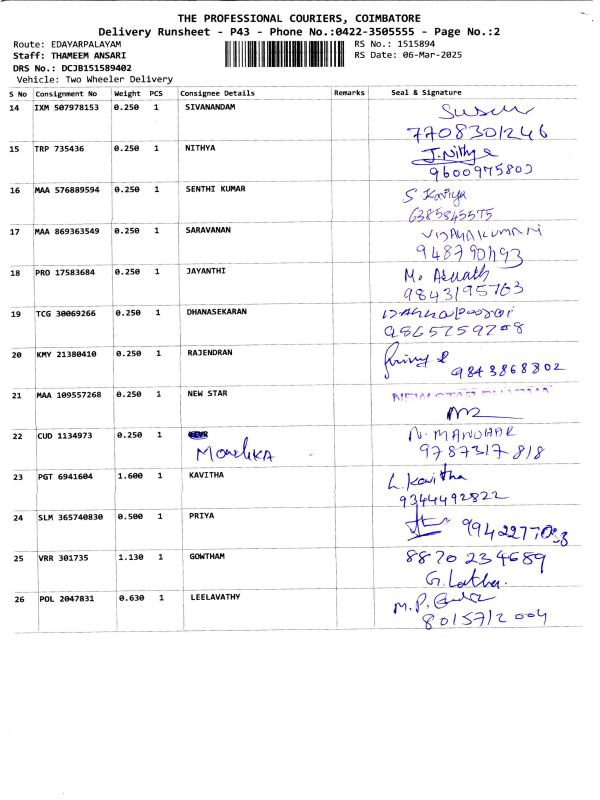 THE PROFESSIONAL COURIERS, COIMBATORE
Delivery Runsheet - P43 - Phone No.:0422-3505555 - Page No.:2
Route: EDAYARPALAYAM RS No.: 1515894
Staff: THAMEEM ANSARI RS Date: 06-Mar-2025
DRS No.: DCJB151589402
Vehicle: Two Wheeler Delivery
S No Consignment No Weight PCS Consignee Details Remarks Seal & Signature
14 IXM 507978153 0.250 1 SIVANANDAM
7708301246
15 TRP 735436 0.250 1 NITHYA J.Nithya
9600975802
16 MAA 576889594 0.250 1 SENTHI KUMAR S Kaviya
6385845575
17 MAA 869363549 0.250 1 SARAVANAN VIJAYAKUMARI
9487901193
18 PRO 17583684 0.250 1 JAYANTHI M.
9843195763
19 TCG 30069266 0.250 1 DHANASEKARAN
9565259208
20 KMY 21380410 0.250 1 RAJENDRAN
9843868302
21 MAA 109557268 0.250 1 NEW STAR NEW STAR
22 CUD 1134973 0.250 1 N. MANOHAR
9787317818
23 PGT 6941604 1.600 1 KAVITHA L. Kavitha
9344492822
24 SLM 365740830 0.500 1 PRIYA
25 VRR 301735 1.130 1 GOWTHAM 8870234689
G. Latha.
26 POL 2047831 0.630 1 LEELAVATHY M.P.
8015712004